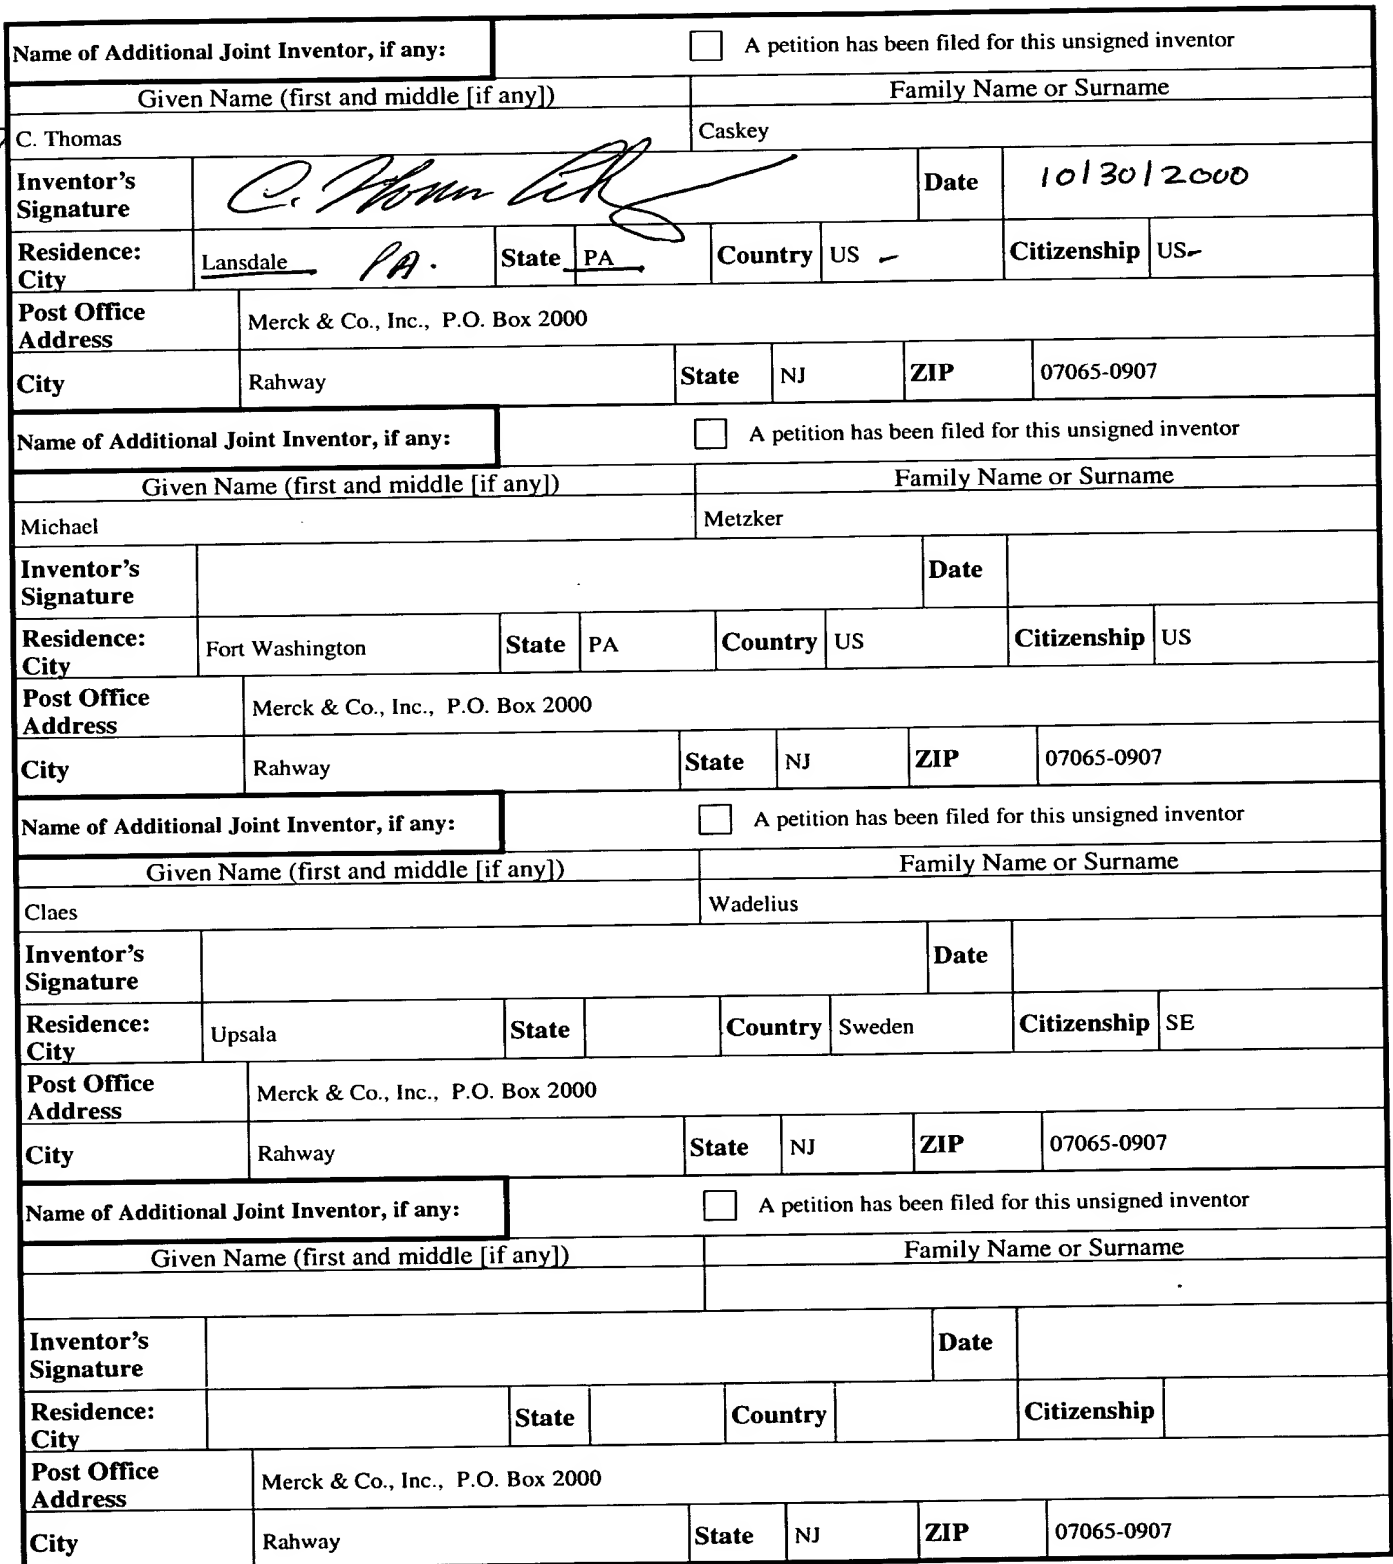 Name of Additional Joint Inventor, if any: A petition has been filed for this unsigned inventor
Given Name (first and middle [if any]) Family Name or Surname
C. Thomas Caskey
Inventor's Signature C. Thomas Date 10/30/2000
Residence: City Lansdale PA. State PA Country US Citizenship US
Post Office Address Merck & Co., Inc., P.O. Box 2000
City Rahway State NJ ZIP 07065-0907
Name of Additional Joint Inventor, if any: A petition has been filed for this unsigned inventor
Given Name (first and middle [if any]) Family Name or Surname
Michael Metzker
Inventor's Signature Date
Residence: City Fort Washington State PA Country US Citizenship US
Post Office Address Merck & Co., Inc., P.O. Box 2000
City Rahway State NJ ZIP 07065-0907
Name of Additional Joint Inventor, if any: A petition has been filed for this unsigned inventor
Given Name (first and middle [if any]) Family Name or Surname
Claes Wadelius
Inventor's Signature Date
Residence: City Upsala State Country Sweden Citizenship SE
Post Office Address Merck & Co., Inc., P.O. Box 2000
City Rahway State NJ ZIP 07065-0907
Name of Additional Joint Inventor, if any: A petition has been filed for this unsigned inventor
Given Name (first and middle [if any]) Family Name or Surname
Inventor's Signature Date
Residence: City State Country Citizenship
Post Office Address Merck & Co., Inc., P.O. Box 2000
City Rahway State NJ ZIP 07065-0907